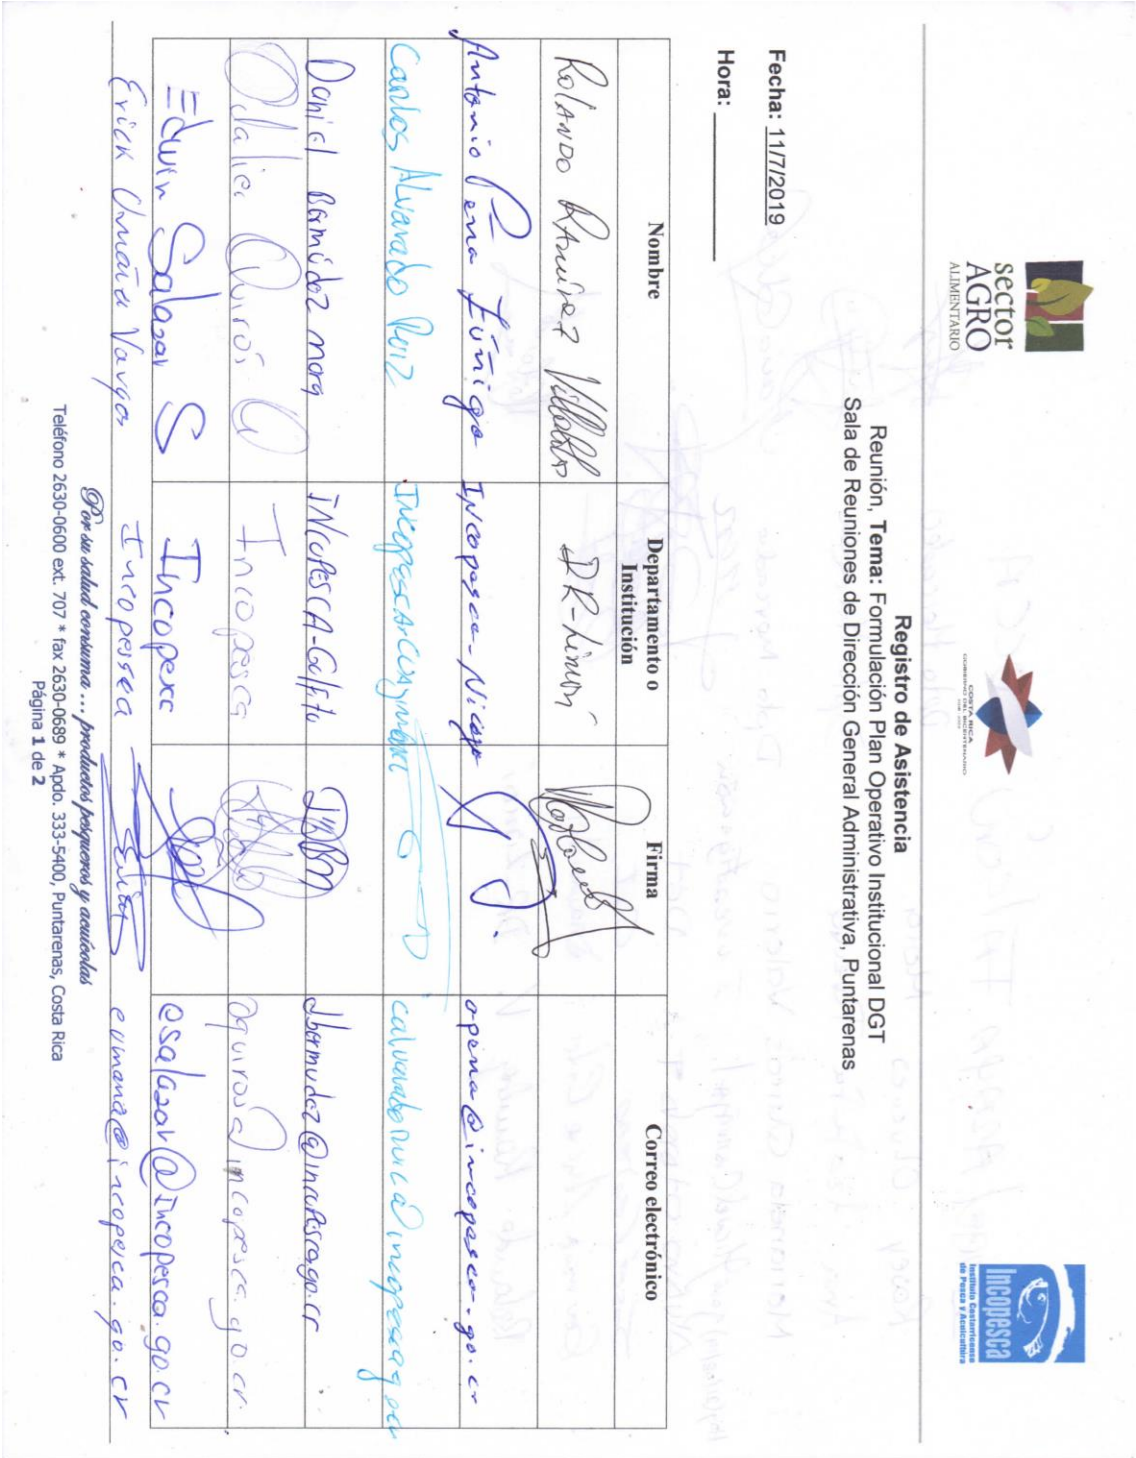 sector
AGRO
ALIMENTARIO
COSTA RICA
GOBIERNO DEL BICENTENARIO
Incopesca
Instituto Costarricense
de Pesca y Acuicultura
Registro de Asistencia
Reunión, Tema: Formulación Plan Operativo Institucional DGT
Sala de Reuniones de Dirección General Administrativa, Puntarenas
Fecha: 11/7/2019
Hora:
Nombre Departamento o Institución Firma Correo electrónico
Rolando Ramírez Villalobos DR-Limón
Antonio Pena Zúñiga Incopesca-Nicoya apena@incopesca.go.cr
Carlos Alvarado Ruiz INCOPESCA
Daniel Bermúdez mora INCOPESCA-Golfito dbermudez@incopesca.go.cr
Odalier Quirós Q Incopesca oquiros@incopesca.go.cr.
Edwin Salazar S Incopesc esalazar@incopesca.go.cr
Erick Umaña Vargas Incopesca eumana@incopesca.go.cr
Por su salud consuma ... productos pesqueros y acuícolas
Teléfono 2630-0600 ext. 707 * fax 2630-0689 * Apdo. 333-5400, Puntarenas, Costa Rica
Página 1 de 2